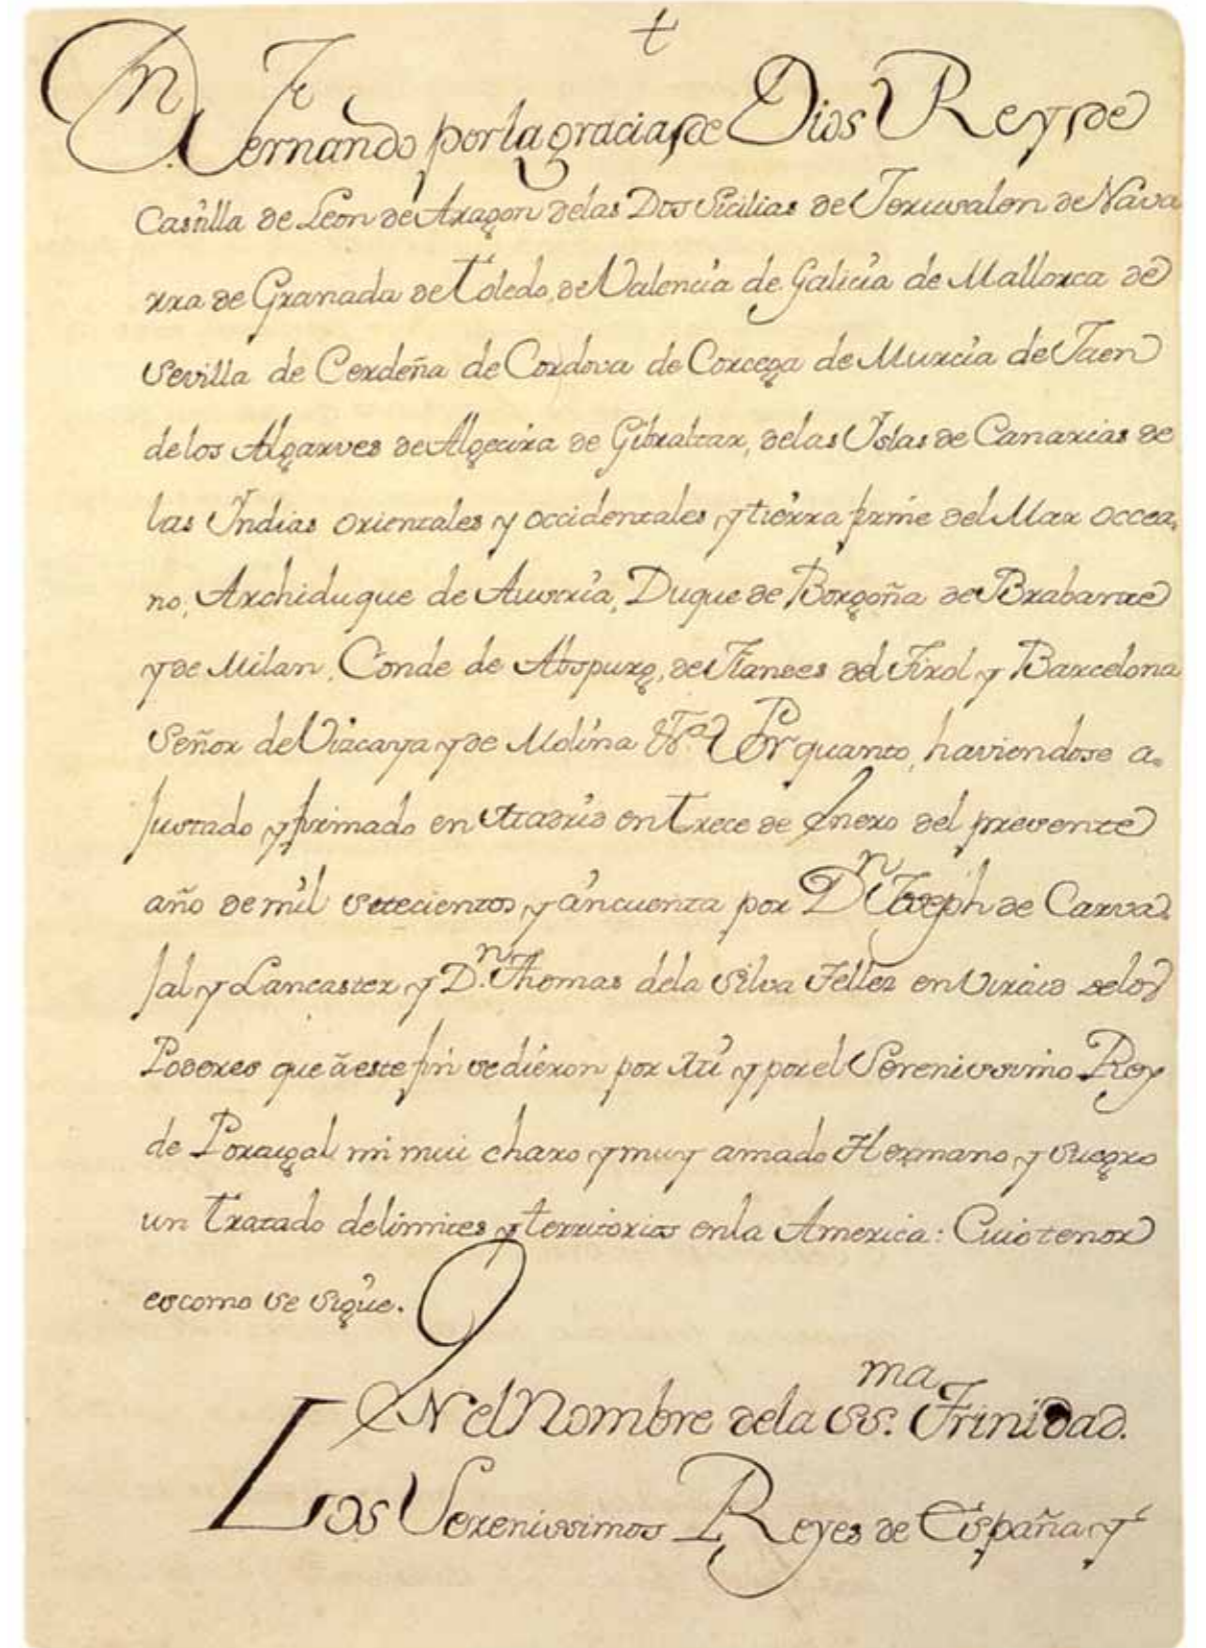 †
Dn. Fernando por la gracia de Dios Rey de
Castilla de Leon de Aragon delas Dos Sicilias de Jerusalen de Nava
rra de Granada de Toledo, de Valencia de Galicia de Mallorca de
Sevilla de Cerdeña de Cordova de Corcega de Murcia de Jaen
delos Algarves de Algecira de Gibraltar, delas Yslas de Canarias de
las Yndias orientales y occidentales y tierra firme del Mar occea,
no, Archiduque de Austria, Duque de Borgoña de Brabante
y de Milan, Conde de Abspurg, de Flandes del Tirol y Barcelona
Señor de Vizcaya y de Molina &a. Por quanto, haviendose a-
justado y firmado en Madrid en trece de Enero del presente
año de mil setecientos y cincuenta por Dn. Joseph de Carva-
jal y Lancaster y Dn. Thomas dela Silva Tellez en virtud delos
Poderes que à este fin se dieron por Mi y por el Serenissimo Rey
de Portugal mi mui charo y muy amado Hermano y suegro
un tratado de limites y territorios en la America: Cuio tenor
es como se sigue.
EN el Nombre dela SSma. Trinidad.
Los Serenissimos Reyes de España y